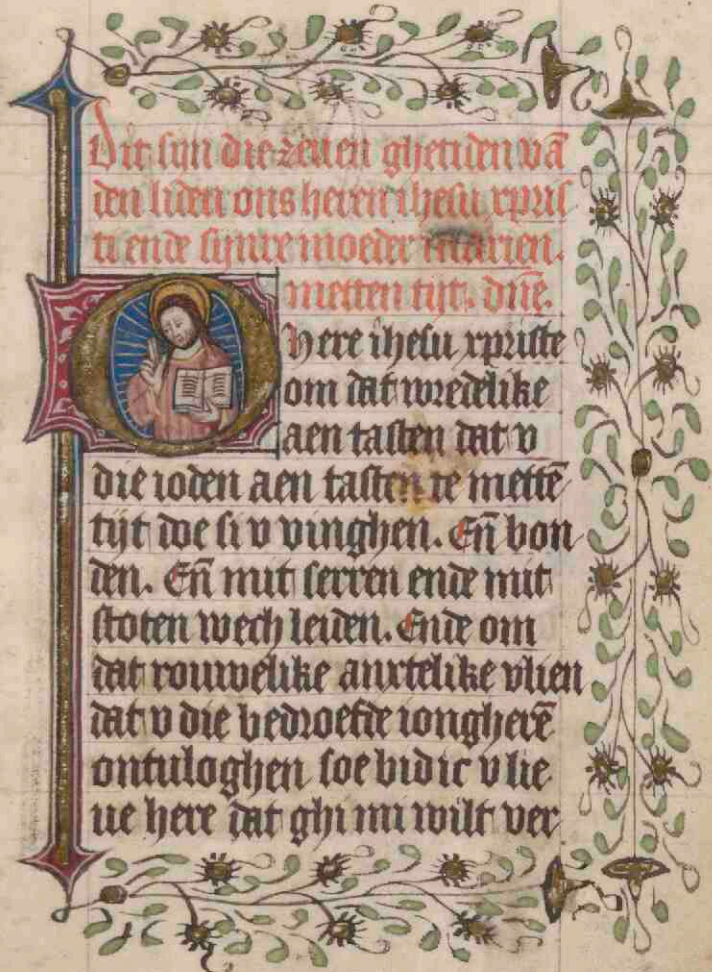 Dit sijn die zeuen ghetiden vā
den liden ons heren ihesu xpris
ti ende sijnre moeder marien.
metten tijt. dnē.
here ihesu xpriste
om dat wredelike
aen tasten dat v
die ioden aen tasten te mettē
tijt doe si v vinghen. Eñ bon
den. Eñ mit serren ende mit
stoten wech leiden. Ende om
dat rouwelike anxtelike vlien
dat v die bedroefde iongherē
ontuloghen soe bid ic v lie
ue here dat ghi mi wilt ver